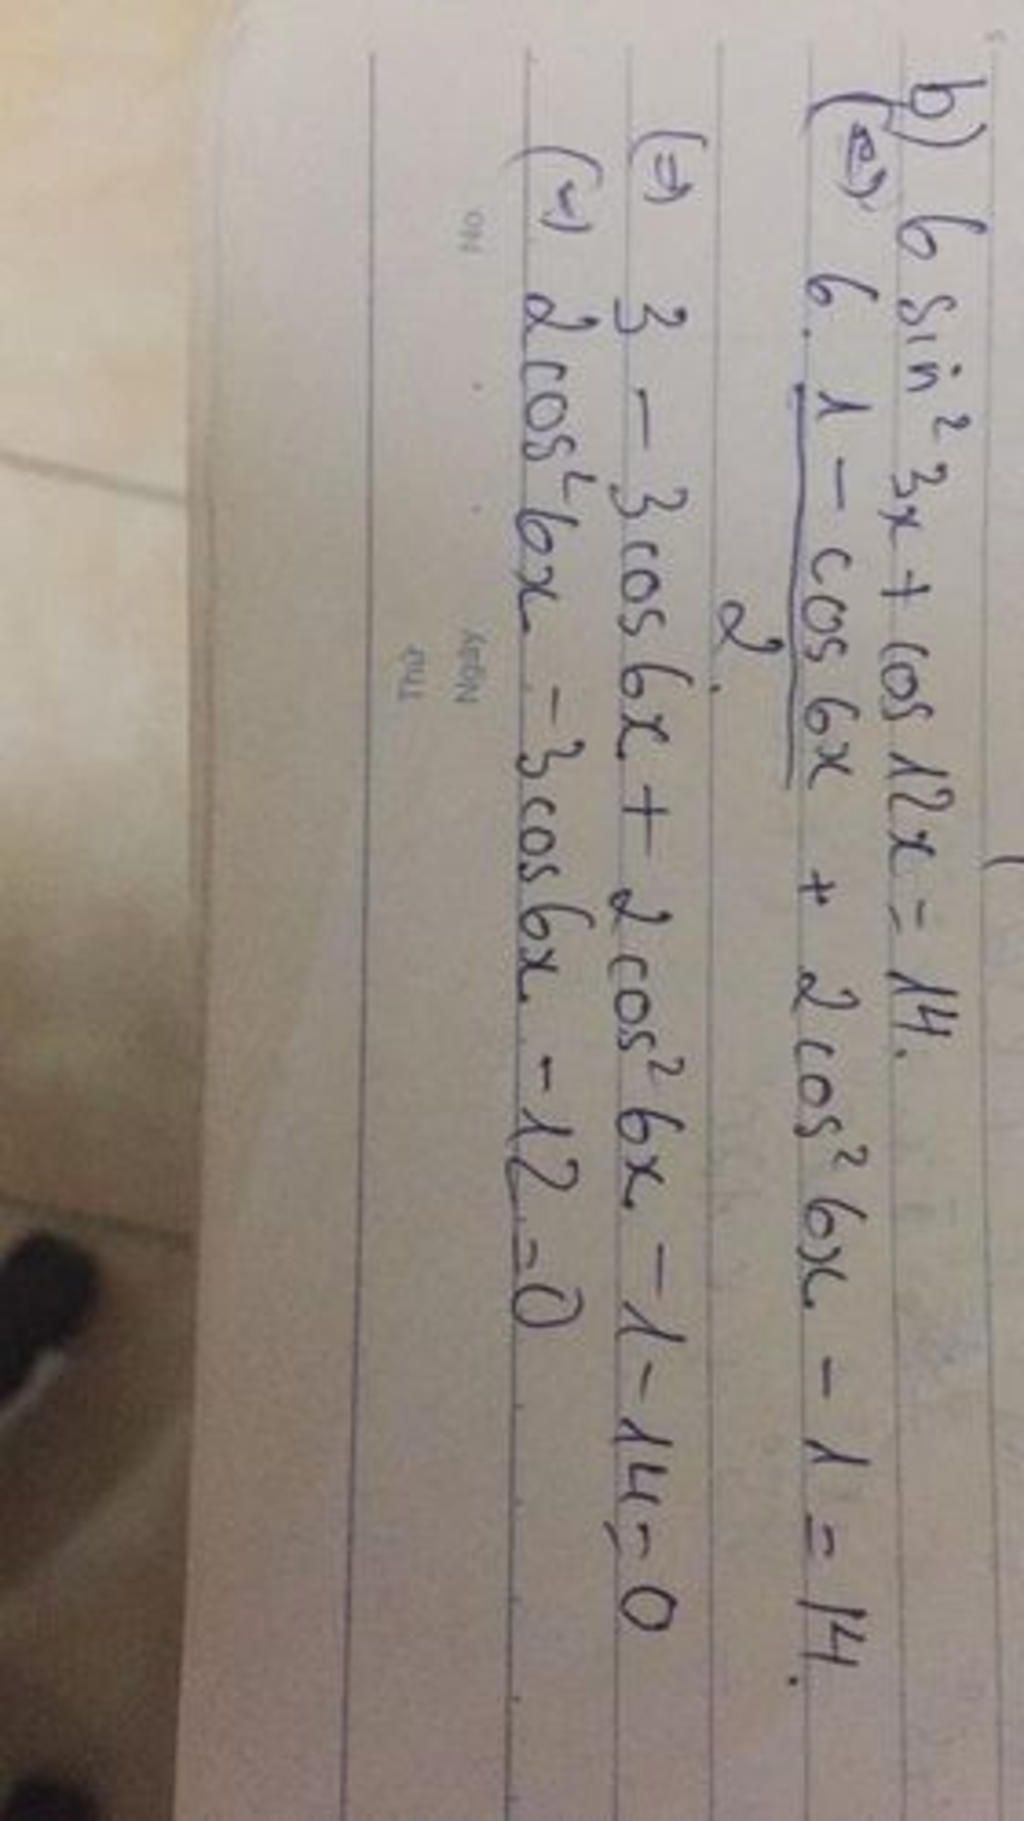 b) 6 sin² 3x + cos 12x = 14.
(⇔) 6. 1 - cos 6x + 2 cos² 6x - 1 = 14.
2.
(⇔) 3 - 3 cos 6x + 2 cos² 6x - 1 - 14 = 0
(⇔) 2 cos² 6x - 3 cos 6x - 12 = 0
No.
Ngày
Thứ